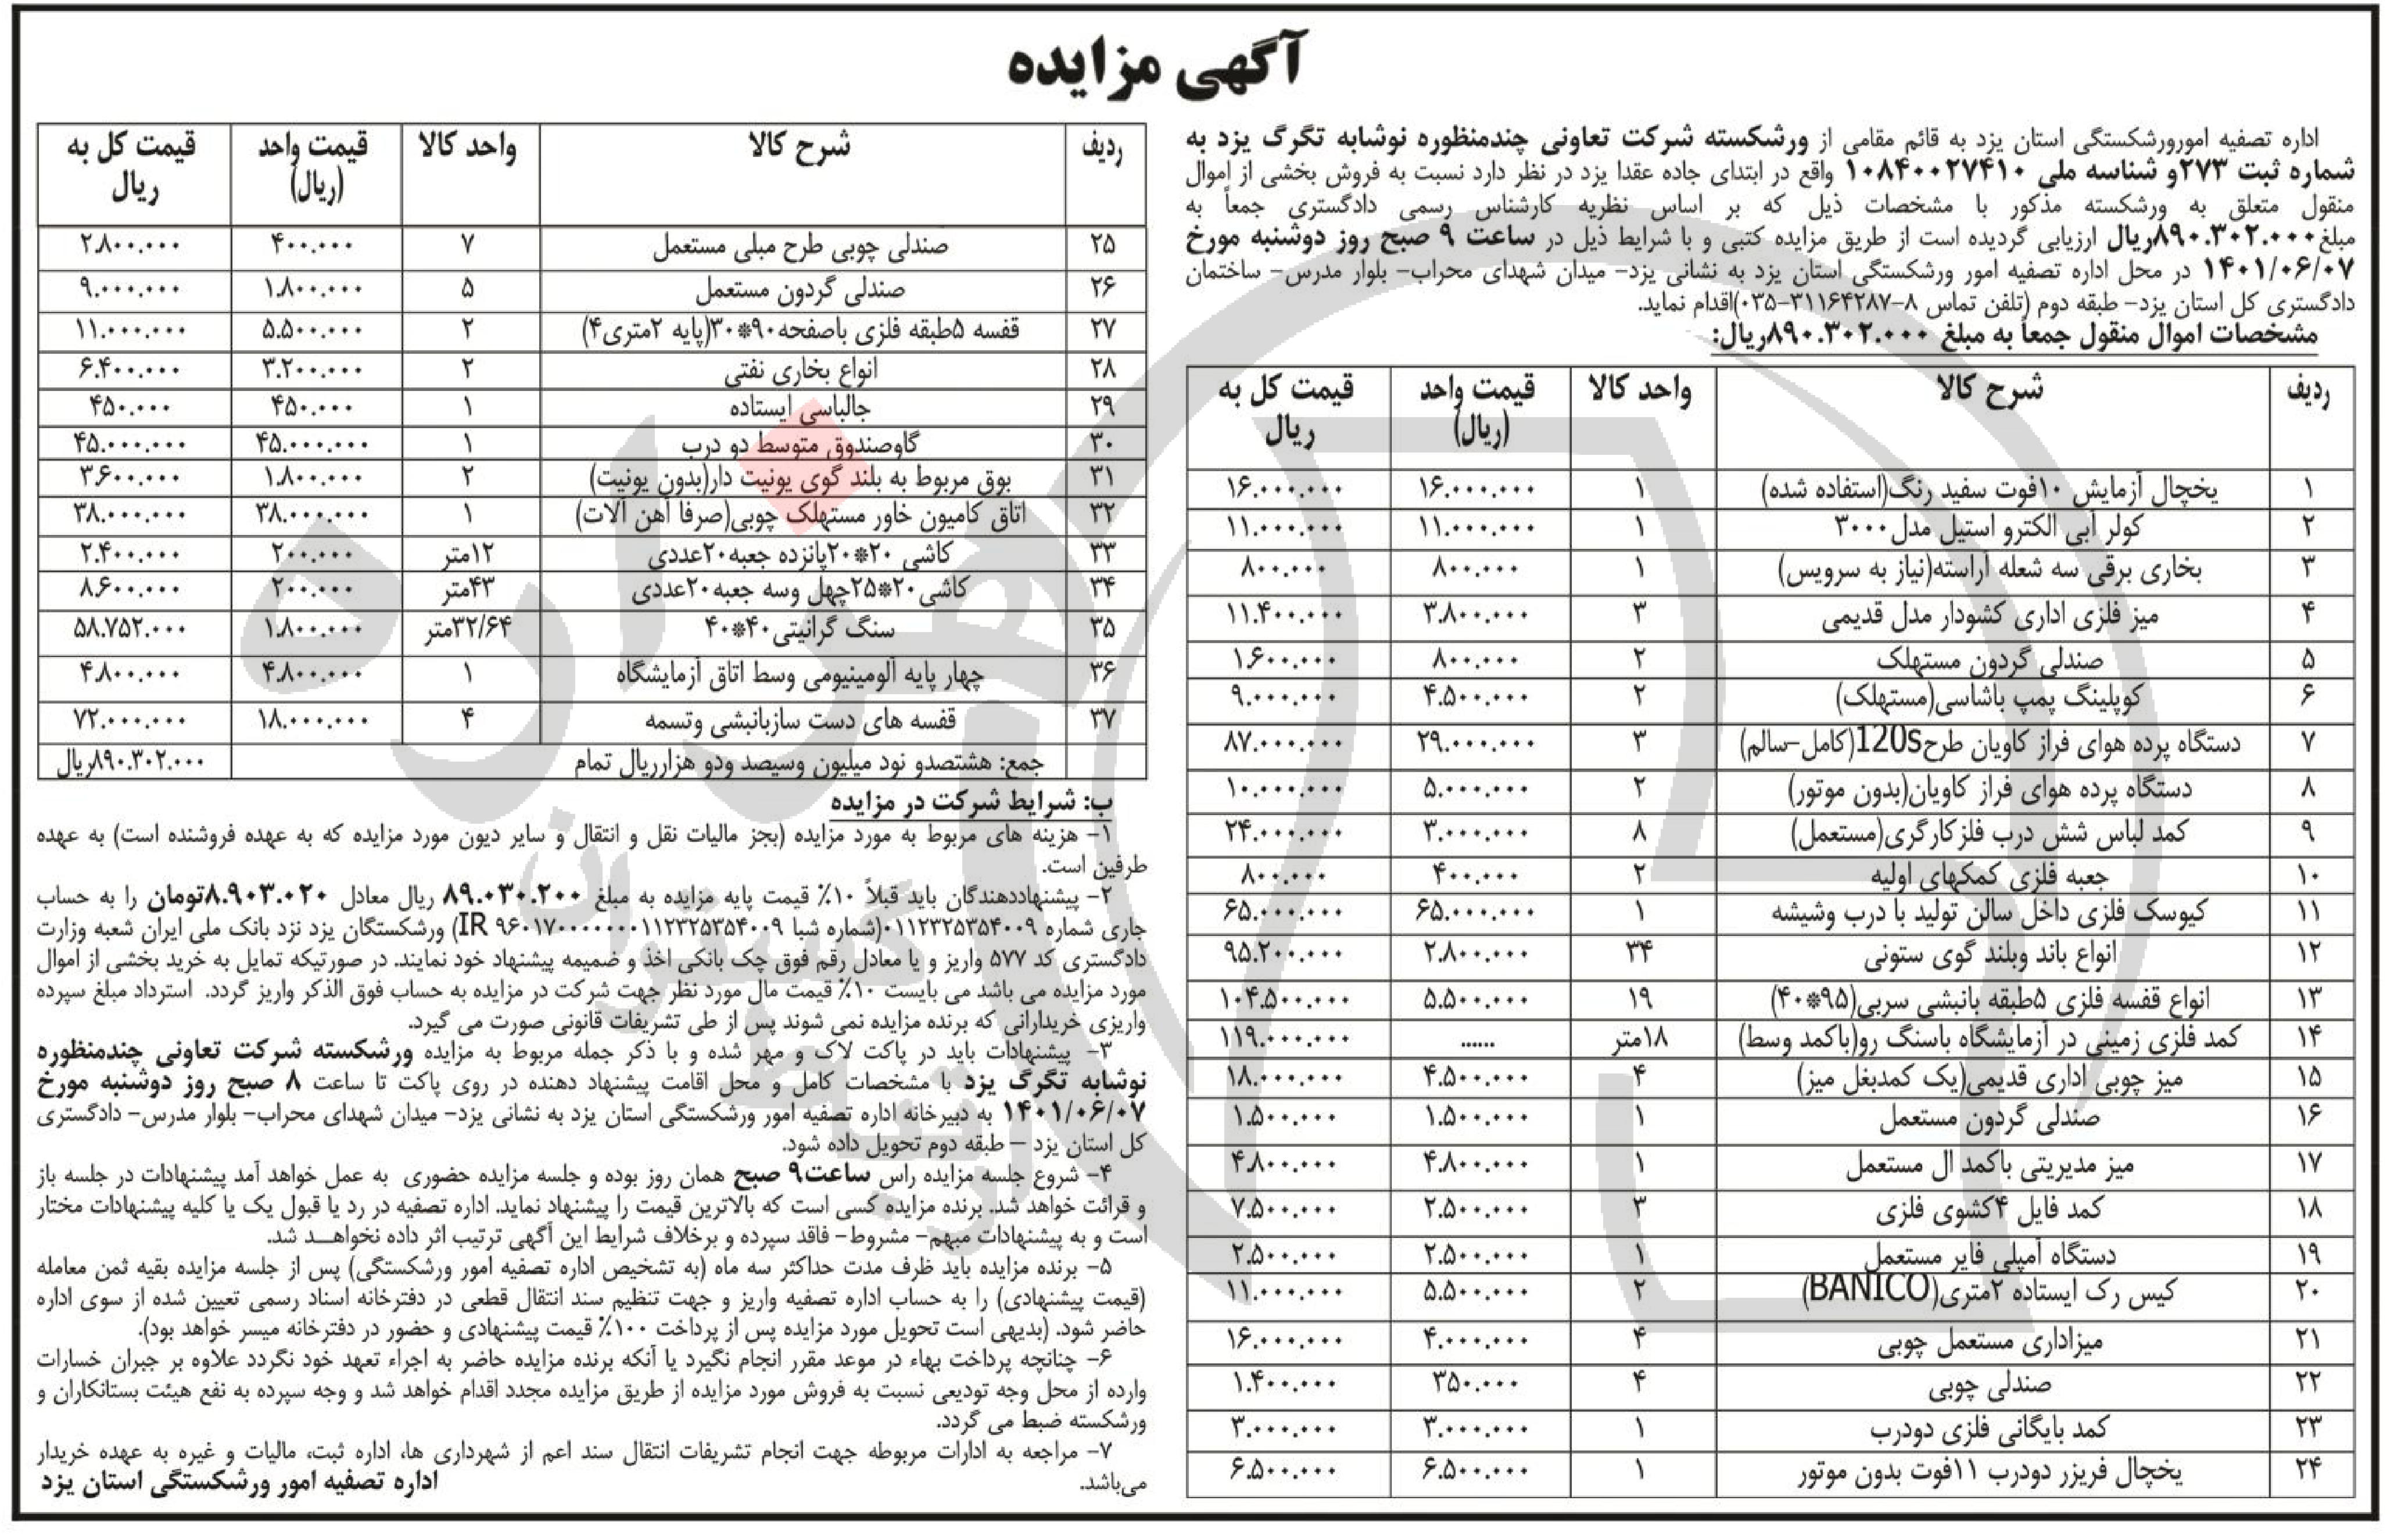 آگهی مزایده
اداره تصفیه امورورشکستگی استان یزد به قائم مقامی از ورشکسته شرکت تعاونی چندمنظوره نوشابه تگرگ یزد به
شماره ثبت ۲۷۳و شناسه ملی ۱۰۸۴۰۰۲۷۴۱۰ واقع در ابتدای جاده عقدا یزد در نظر دارد نسبت به فروش بخشی از اموال
منقول متعلق به ورشکسته مذکور با مشخصات ذیل که بر اساس نظریه کارشناس رسمی دادگستری جمعاً به
مبلغ ۸۹۰.۳۰۲.۰۰۰ریال ارزیابی گردیده است از طریق مزایده کتبی و با شرایط ذیل در ساعت ۹ صبح روز دوشنبه مورخ
۱۴۰۱/۰۶/۰۷ در محل اداره تصفیه امور ورشکستگی استان یزد به نشانی یزد- میدان شهدای محراب- بلوار مدرس- ساختمان
دادگستری کل استان یزد- طبقه دوم (تلفن تماس ۸-۳۱۱۶۴۲۸۷-۰۳۵)اقدام نماید.
مشخصات اموال منقول جمعاً به مبلغ ۸۹۰.۳۰۲.۰۰۰ریال:
ردیف شرح کالا واحد کالا قیمت واحد (ریال) قیمت کل به ریال
۱ یخچال آزمایش ۱۰فوت سفید رنگ(استفاده شده) ۱ ۱۶.۰۰۰.۰۰۰ ۱۶.۰۰۰.۰۰۰
۲ کولر آبی الکترو استیل مدل ۳۰۰۰ ۱ ۱۱.۰۰۰.۰۰۰ ۱۱.۰۰۰.۰۰۰
۳ بخاری برقی سه شعله آراسته(نیاز به سرویس) ۱ ۸۰۰.۰۰۰ ۸۰۰.۰۰۰
۴ میز فلزی اداری کشودار مدل قدیمی ۳ ۳.۸۰۰.۰۰۰ ۱۱.۴۰۰.۰۰۰
۵ صندلی گردون مستهلک ۲ ۸۰۰.۰۰۰ ۱.۶۰۰.۰۰۰
۶ کوپلینگ پمپ باشاسی(مستهلک) ۲ ۴.۵۰۰.۰۰۰ ۹.۰۰۰.۰۰۰
۷ دستگاه پرده هوای فراز کاویان طرح120S(کامل-سالم) ۳ ۲۹.۰۰۰.۰۰۰ ۸۷.۰۰۰.۰۰۰
۸ دستگاه پرده هوای فراز کاویان(بدون موتور) ۲ ۵.۰۰۰.۰۰۰ ۱۰.۰۰۰.۰۰۰
۹ کمد لباس شش درب فلزکارگری(مستعمل) ۸ ۳.۰۰۰.۰۰۰ ۲۴.۰۰۰.۰۰۰
۱۰ جعبه فلزی کمکهای اولیه ۲ ۴۰۰.۰۰۰ ۸۰۰.۰۰۰
۱۱ کیوسک فلزی داخل سالن تولید با درب وشیشه ۱ ۶۵.۰۰۰.۰۰۰ ۶۵.۰۰۰.۰۰۰
۱۲ انواع باند وبلند گوی ستونی ۳۴ ۲.۸۰۰.۰۰۰ ۹۵.۲۰۰.۰۰۰
۱۳ انواع قفسه فلزی ۵طبقه بانبشی سربی(۹۵*۴۰) ۱۹ ۵.۵۰۰.۰۰۰ ۱۰۴.۵۰۰.۰۰۰
۱۴ کمد فلزی زمینی در آزمایشگاه باسنگ رو(باکمد وسط) ۱۸متر ...... ۱۱۹.۰۰۰.۰۰۰
۱۵ میز چوبی اداری قدیمی(یک کمدبغل میز) ۴ ۴.۵۰۰.۰۰۰ ۱۸.۰۰۰.۰۰۰
۱۶ صندلی گردون مستعمل ۱ ۱.۵۰۰.۰۰۰ ۱.۵۰۰.۰۰۰
۱۷ میز مدیریتی باکمد ال مستعمل ۱ ۴.۸۰۰.۰۰۰ ۴.۸۰۰.۰۰۰
۱۸ کمد فایل ۴کشوی فلزی ۳ ۲.۵۰۰.۰۰۰ ۷.۵۰۰.۰۰۰
۱۹ دستگاه آمپلی فایر مستعمل ۱ ۲.۵۰۰.۰۰۰ ۲.۵۰۰.۰۰۰
۲۰ کیس رک ایستاده ۲متری(BANICO) ۲ ۵.۵۰۰.۰۰۰ ۱۱.۰۰۰.۰۰۰
۲۱ میزاداری مستعمل چوبی ۴ ۴.۰۰۰.۰۰۰ ۱۶.۰۰۰.۰۰۰
۲۲ صندلی چوبی ۴ ۳۵۰.۰۰۰ ۱.۴۰۰.۰۰۰
۲۳ کمد بایگانی فلزی دودرب ۱ ۳.۰۰۰.۰۰۰ ۳.۰۰۰.۰۰۰
۲۴ یخچال فریزر دودرب ۱۱فوت بدون موتور ۱ ۶.۵۰۰.۰۰۰ ۶.۵۰۰.۰۰۰
ردیف شرح کالا واحد کالا قیمت واحد (ریال) قیمت کل به ریال
۲۵ صندلی چوبی طرح مبلی مستعمل ۷ ۴۰۰.۰۰۰ ۲.۸۰۰.۰۰۰
۲۶ صندلی گردون مستعمل ۵ ۱.۸۰۰.۰۰۰ ۹.۰۰۰.۰۰۰
۲۷ قفسه ۵طبقه فلزی باصفحه۹۰*۳۰(پایه ۲متری۴) ۲ ۵.۵۰۰.۰۰۰ ۱۱.۰۰۰.۰۰۰
۲۸ انواع بخاری نفتی ۲ ۳.۲۰۰.۰۰۰ ۶.۴۰۰.۰۰۰
۲۹ جالباسی ایستاده ۱ ۴۵۰.۰۰۰ ۴۵۰.۰۰۰
۳۰ گاوصندوق متوسط دو درب ۱ ۴۵.۰۰۰.۰۰۰ ۴۵.۰۰۰.۰۰۰
۳۱ بوق مربوط به بلند گوی یونیت دار(بدون یونیت) ۲ ۱.۸۰۰.۰۰۰ ۳.۶۰۰.۰۰۰
۳۲ اتاق کامیون خاور مستهلک چوبی(صرفا آهن آلات) ۱ ۳۸.۰۰۰.۰۰۰ ۳۸.۰۰۰.۰۰۰
۳۳ کاشی ۲۰*۲۰پانزده جعبه۲۰عددی ۱۲متر ۲۰۰.۰۰۰ ۲.۴۰۰.۰۰۰
۳۴ کاشی ۲۰*۲۵چهل وسه جعبه۲۰عددی ۴۳متر ۲۰۰.۰۰۰ ۸.۶۰۰.۰۰۰
۳۵ سنگ گرانیتی ۴۰*۴۰ ۳۲/۶۴متر ۱.۸۰۰.۰۰۰ ۵۸.۷۵۲.۰۰۰
۳۶ چهار پایه آلومینیومی وسط اتاق آزمایشگاه ۱ ۴.۸۰۰.۰۰۰ ۴.۸۰۰.۰۰۰
۳۷ قفسه های دست سازبانبشی وتسمه ۴ ۱۸.۰۰۰.۰۰۰ ۷۲.۰۰۰.۰۰۰
جمع: هشتصدو نود میلیون وسیصد ودو هزارریال تمام ۸۹۰.۳۰۲.۰۰۰ریال
ب: شرایط شرکت در مزایده
۱- هزینه های مربوط به مورد مزایده (بجز مالیات نقل و انتقال و سایر دیون مورد مزایده که به عهده فروشنده است) به عهده
طرفین است.
۲- پیشنهاددهندگان باید قبلاً ۱۰٪ قیمت پایه مزایده به مبلغ ۸۹.۰۳۰.۲۰۰ ریال معادل ۸.۹۰۳.۰۲۰تومان را به حساب
جاری شماره ۰۱۱۲۳۲۵۳۵۴۰۰۹(شماره شبا IR ۹۶۰۱۷۰۰۰۰۰۰۰۰۱۱۲۳۲۵۳۵۴۰۰۹) ورشکستگان یزد نزد بانک ملی ایران شعبه وزارت
دادگستری کد ۵۷۷ واریز و یا معادل رقم فوق چک بانکی اخذ و ضمیمه پیشنهاد خود نمایند. در صورتیکه تمایل به خرید بخشی از اموال
مورد مزایده می باشد می بایست ۱۰٪ قیمت مال مورد نظر جهت شرکت در مزایده به حساب فوق الذکر واریز گردد. استرداد مبلغ سپرده
واریزی خریدارانی که برنده مزایده نمی شوند پس از طی تشریفات قانونی صورت می گیرد.
۳- پیشنهادات باید در پاکت لاک و مهر شده و با ذکر جمله مربوط به مزایده ورشکسته شرکت تعاونی چندمنظوره
نوشابه تگرگ یزد با مشخصات کامل و محل اقامت پیشنهاد دهنده در روی پاکت تا ساعت ۸ صبح روز دوشنبه مورخ
۱۴۰۱/۰۶/۰۷ به دبیرخانه اداره تصفیه امور ورشکستگی استان یزد به نشانی یزد- میدان شهدای محراب- بلوار مدرس- دادگستری
کل استان یزد – طبقه دوم تحویل داده شود.
۴- شروع جلسه مزایده راس ساعت۹ صبح همان روز بوده و جلسه مزایده حضوری به عمل خواهد آمد پیشنهادات در جلسه باز
و قرائت خواهد شد. برنده مزایده کسی است که بالاترین قیمت را پیشنهاد نماید. اداره تصفیه در رد یا قبول یک یا کلیه پیشنهادات مختار
است و به پیشنهادات مبهم- مشروط- فاقد سپرده و برخلاف شرایط این آگهی ترتیب اثر داده نخواهد شد.
۵- برنده مزایده باید ظرف مدت حداکثر سه ماه (به تشخیص اداره تصفیه امور ورشکستگی) پس از جلسه مزایده بقیه ثمن معامله
(قیمت پیشنهادی) را به حساب اداره تصفیه واریز و جهت تنظیم سند انتقال قطعی در دفترخانه اسناد رسمی تعیین شده از سوی اداره
حاضر شود. (بدیهی است تحویل مورد مزایده پس از پرداخت ۱۰۰٪ قیمت پیشنهادی و حضور در دفترخانه میسر خواهد بود).
۶- چنانچه پرداخت بهاء در موعد مقرر انجام نگیرد یا آنکه برنده مزایده حاضر به اجراء تعهد خود نگردد علاوه بر جبران خسارات
وارده از محل وجه تودیعی نسبت به فروش مورد مزایده از طریق مزایده مجدد اقدام خواهد شد و وجه سپرده به نفع هیئت بستانکاران و
ورشکسته ضبط می گردد.
۷- مراجعه به ادارات مربوطه جهت انجام تشریفات انتقال سند اعم از شهرداری ها، اداره ثبت، مالیات و غیره به عهده خریدار
می‌باشد.
اداره تصفیه امور ورشکستگی استان یزد